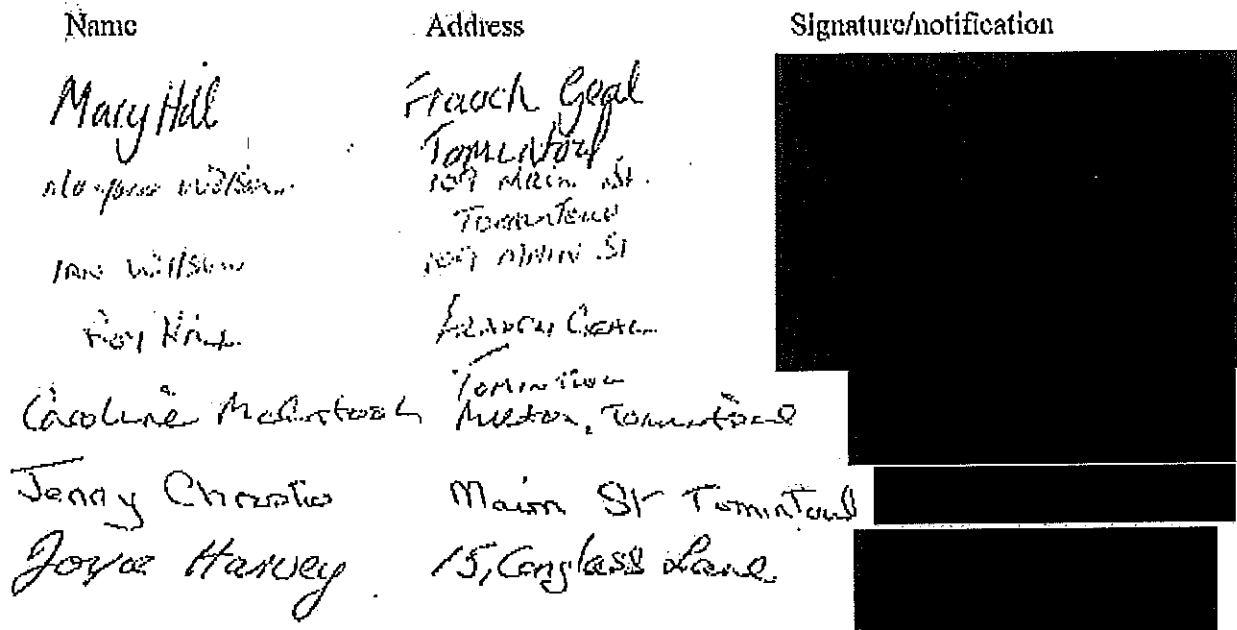 Name Address Signature/notification
Mary Hill Fraoch Geal
Tomintoul
Wilson 109 Main St.
Tomintoul
Ian Wilson 109 Main St
Roy Hill Fraoch Geal
Tomintoul
Caroline McIntosh Milton, Tomintoul
Jenny Christie Main St Tomintoul
Joyce Harvey 15, Conglass Lane